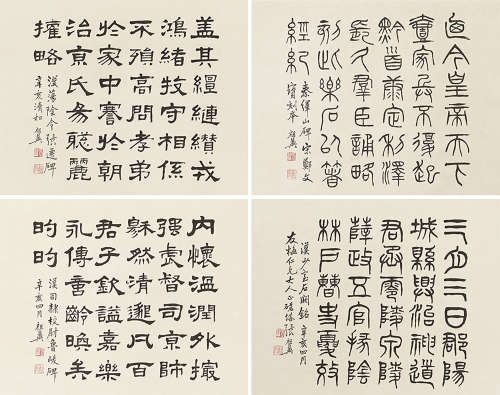 蓋其繵縺纘戎
鴻緒牧守相係
不殞高問孝弟
於家中謇於朝
治京氏易聰麗
權略
漢蕩陰令張遷碑
辛亥清和 祖翼
迺今皇帝天下
壹家兵不復起
黔首康定利澤
長久群臣誦略
刻此樂石以著
經紀
秦繹山碑 宋鄭文
寶刻本 祖翼
內懷溫潤外撮
強虐督司京師
穆然清邈凡百
君子欽謚嘉樂
永傳齡矣
旳旳
漢司隸校尉魯峻碑
辛亥四月 祖翼
三月三日郡陽
城縣興治神道
君丞零陵泉陵
薛政五官掾陰
林戶曹史夏效
漢少室石闕銘 辛亥四月
仁兄大人正 祖翼